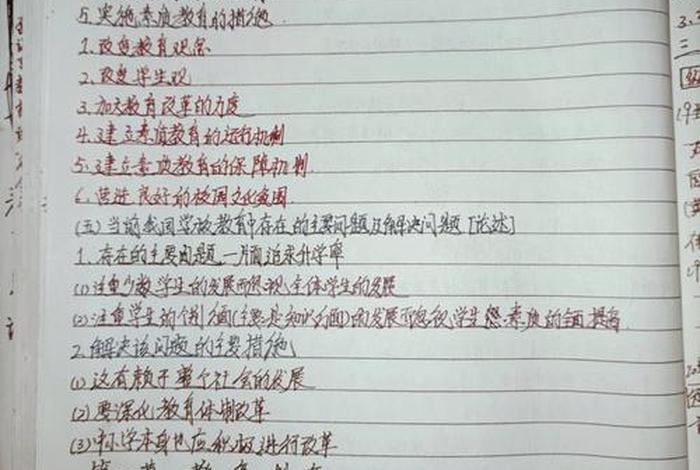 5.实施素质教育的措施.
1.改变教育观念
2.改变学生观
3.加大教育改革的力度
4.建立素质教育的运行机制
5.建立素质教育的保障机制.
6.营造良好的校园文化氛围.
(五)当前我国学校教育中存在的主要问题及解决问题[论述]
1.存在的主要问题一片面追求升学率
(1)注重少数学生的发展而忽视全体学生的发展
(2)注重学生的个别方面(主要是知识方面)的发展而忽视学生素质的全面提高.
2.解决该问题的主要措施
(1)这有赖于整个社会的发展
(2)要深化教育体制改革
(3)中小学本身也应积极进行改革